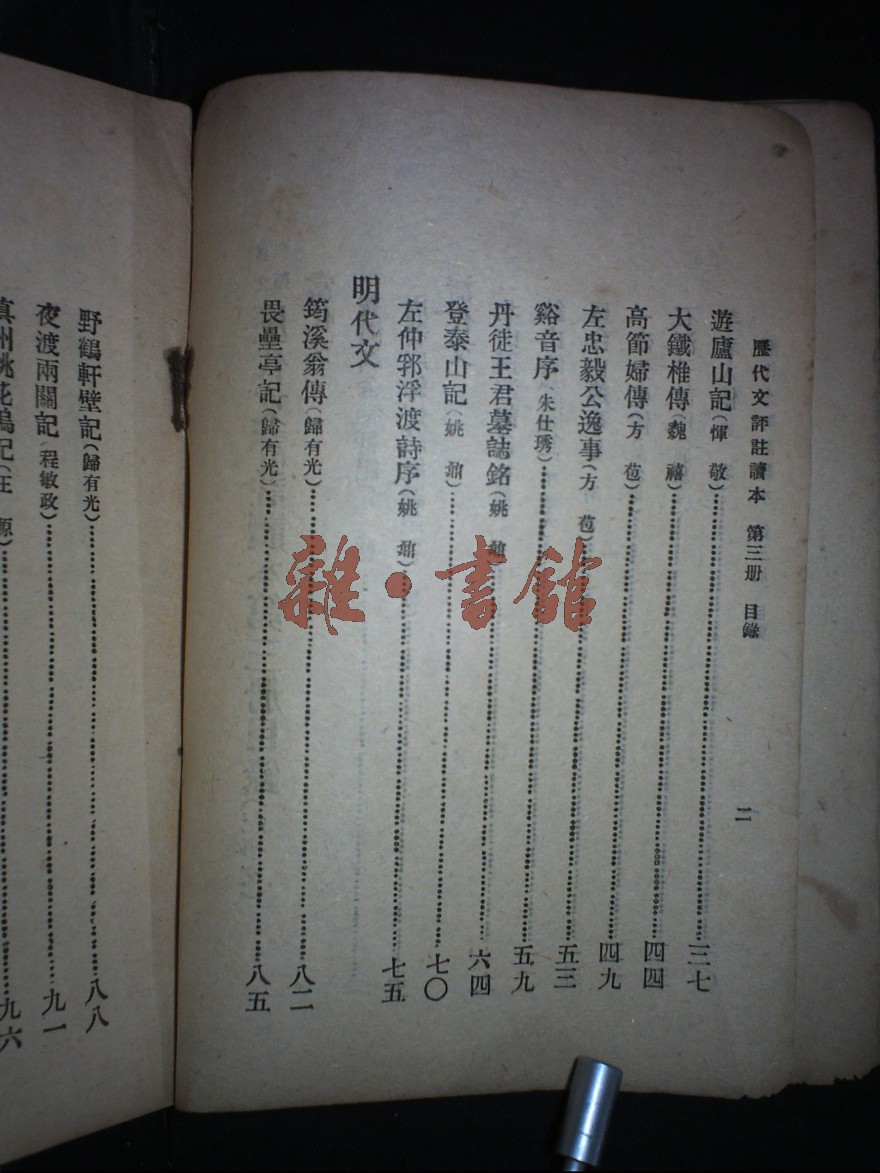 歷代文評註讀本　第三册　目錄
二
遊廬山記(惲　敬)……三七
大鐵椎傳(魏　禧)……四四
高節婦傳(方　苞)……四九
左忠毅公逸事(方　苞)……五三
谿音序(朱仕琇)……五九
丹徒王君墓誌銘(姚　鼐)……六四
登泰山記(姚　鼐)……七〇
左仲郛浮渡詩序(姚　鼐)……七五
明代文
筠溪翁傳(歸有光)……八二
畏壘亭記(歸有光)……八五
野鶴軒壁記(歸有光)……八八
夜渡兩關記(程敏政)……九一
眞州桃花塢記(王　源)……九六
雜·書館